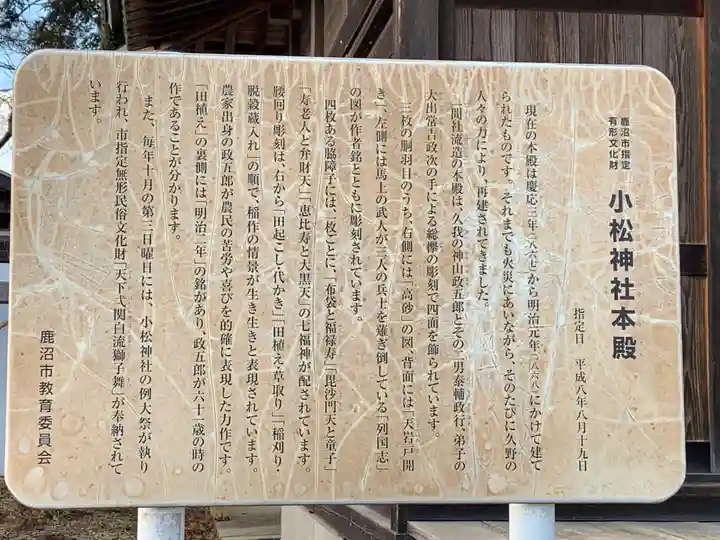 鹿沼市指定
有形文化財
小松神社本殿
指定日　平成八年八月十九日
現在の本殿は慶応三年（一八六七）から明治元年（一八六八）にかけて建て
られたものです。それまでも火災にあいながら、そのたびに久野の
人々の力により、再建されてきました。
一間社流造の本殿は、久我の神山政五郎とその二男泰輔政行、弟子の
大出常吉政次の手による総欅の彫刻で四面を飾られています。
三枚の胴羽目のうち、右側には「高砂」の図、背面には「天岩戸開
き」、左側には馬上の武人が三人の兵士を薙ぎ倒している「列国志」
の図が作者銘とともに彫刻されています。
四枚ある脇障子には、一枚ごとに、「布袋と福禄寿」「毘沙門天と童子」
「寿老人と弁財天」「恵比寿と大黒天」の七福神が配されています。
腰回り彫刻は、右から「田起こし・代かき」「田植え・草取り」「稲刈り・
脱穀蔵入れ」の順で、稲作の情景が生き生きと表現されています。
農家出身の政五郎が農民の苦労や喜びを的確に表現した力作です。
「田植え」の裏側には「明治二年」の銘があり、政五郎が六十一歳の時の
作であることが分かります。
また、毎年十月の第三日曜日には、小松神社の例大祭が執り
行われ、市指定無形民俗文化財「天下一関白流獅子舞」が奉納されて
います。
鹿沼市教育委員会